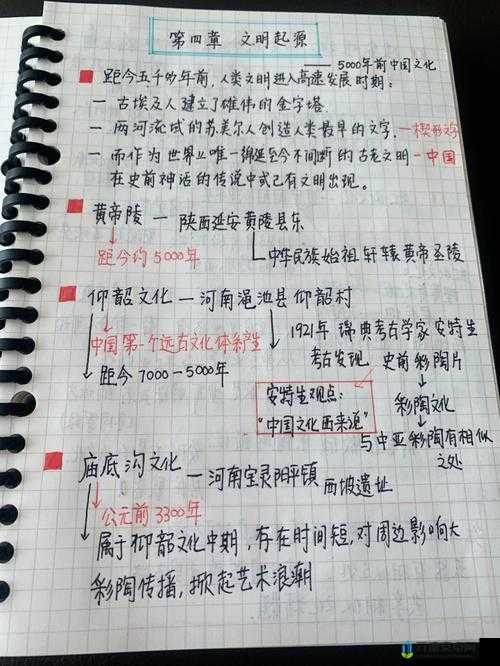 第四章 文明起源
—— 5000年前中国文化
距今五千多年前,人类文明进入高速发展时期:
— 古埃及人建立了雄伟的金字塔.
— 两河流域的苏美尔人创造人类最早的文字,—楔形文字
— 而作为世界上唯一绵延至今不间断的古老文明—中国
在史前神话的传说中或已有文明出现。
黄帝陵 — 陕西延安黄陵县东
距今约5000年
中华民族始祖轩辕黄帝丘陵
仰韶文化 — 河南渑池县仰韶村
中国第一个远古文化体系诞生
1921年 瑞典考古学家安特生
考古发现 史前彩陶片
距今7000-5000年
安特生观点:
"中国文化西来说"
彩陶文化
与中亚彩陶有相似
之处
庙底沟文化 — 河南宝灵阳平镇
西坡遗址
公元前3300年
属于仰韶文化中期,存在时间短,对周边影响大
彩陶传播,掀起艺术浪潮